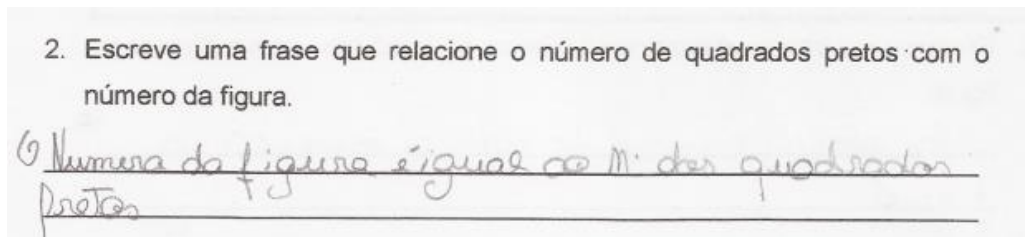 2. Escreve uma frase que relacione o número de quadrados pretos com o
número da figura.
O Numero da figura é igual ao n. dos quadrados
pretos